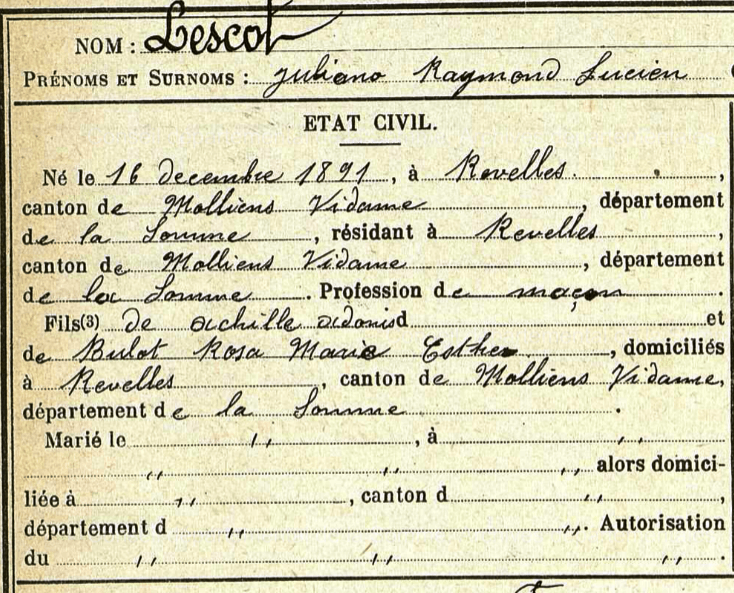 NOM : Lescot
PRÉNOMS ET SURNOMS : Juliano Raymond Lucien
ETAT CIVIL.
Né le 16 decembre 1891, à Revelles,
canton de Molliens Vidame, département
de la Somme, résidant à Revelles,
canton de Molliens Vidame, département
de la Somme. Profession de maçon.
Fils(3) de achille adonis d et
de Bulot Rosa Marie Esther, domiciliés
à Revelles, canton de Molliens Vidame,
département de la Somme.
Marié le ,, , à ,,
,, ,, ,, alors domici-
liée à ,, , canton d ,, ,
département d ,, ,,. Autorisation
du ,, ,, ,, .